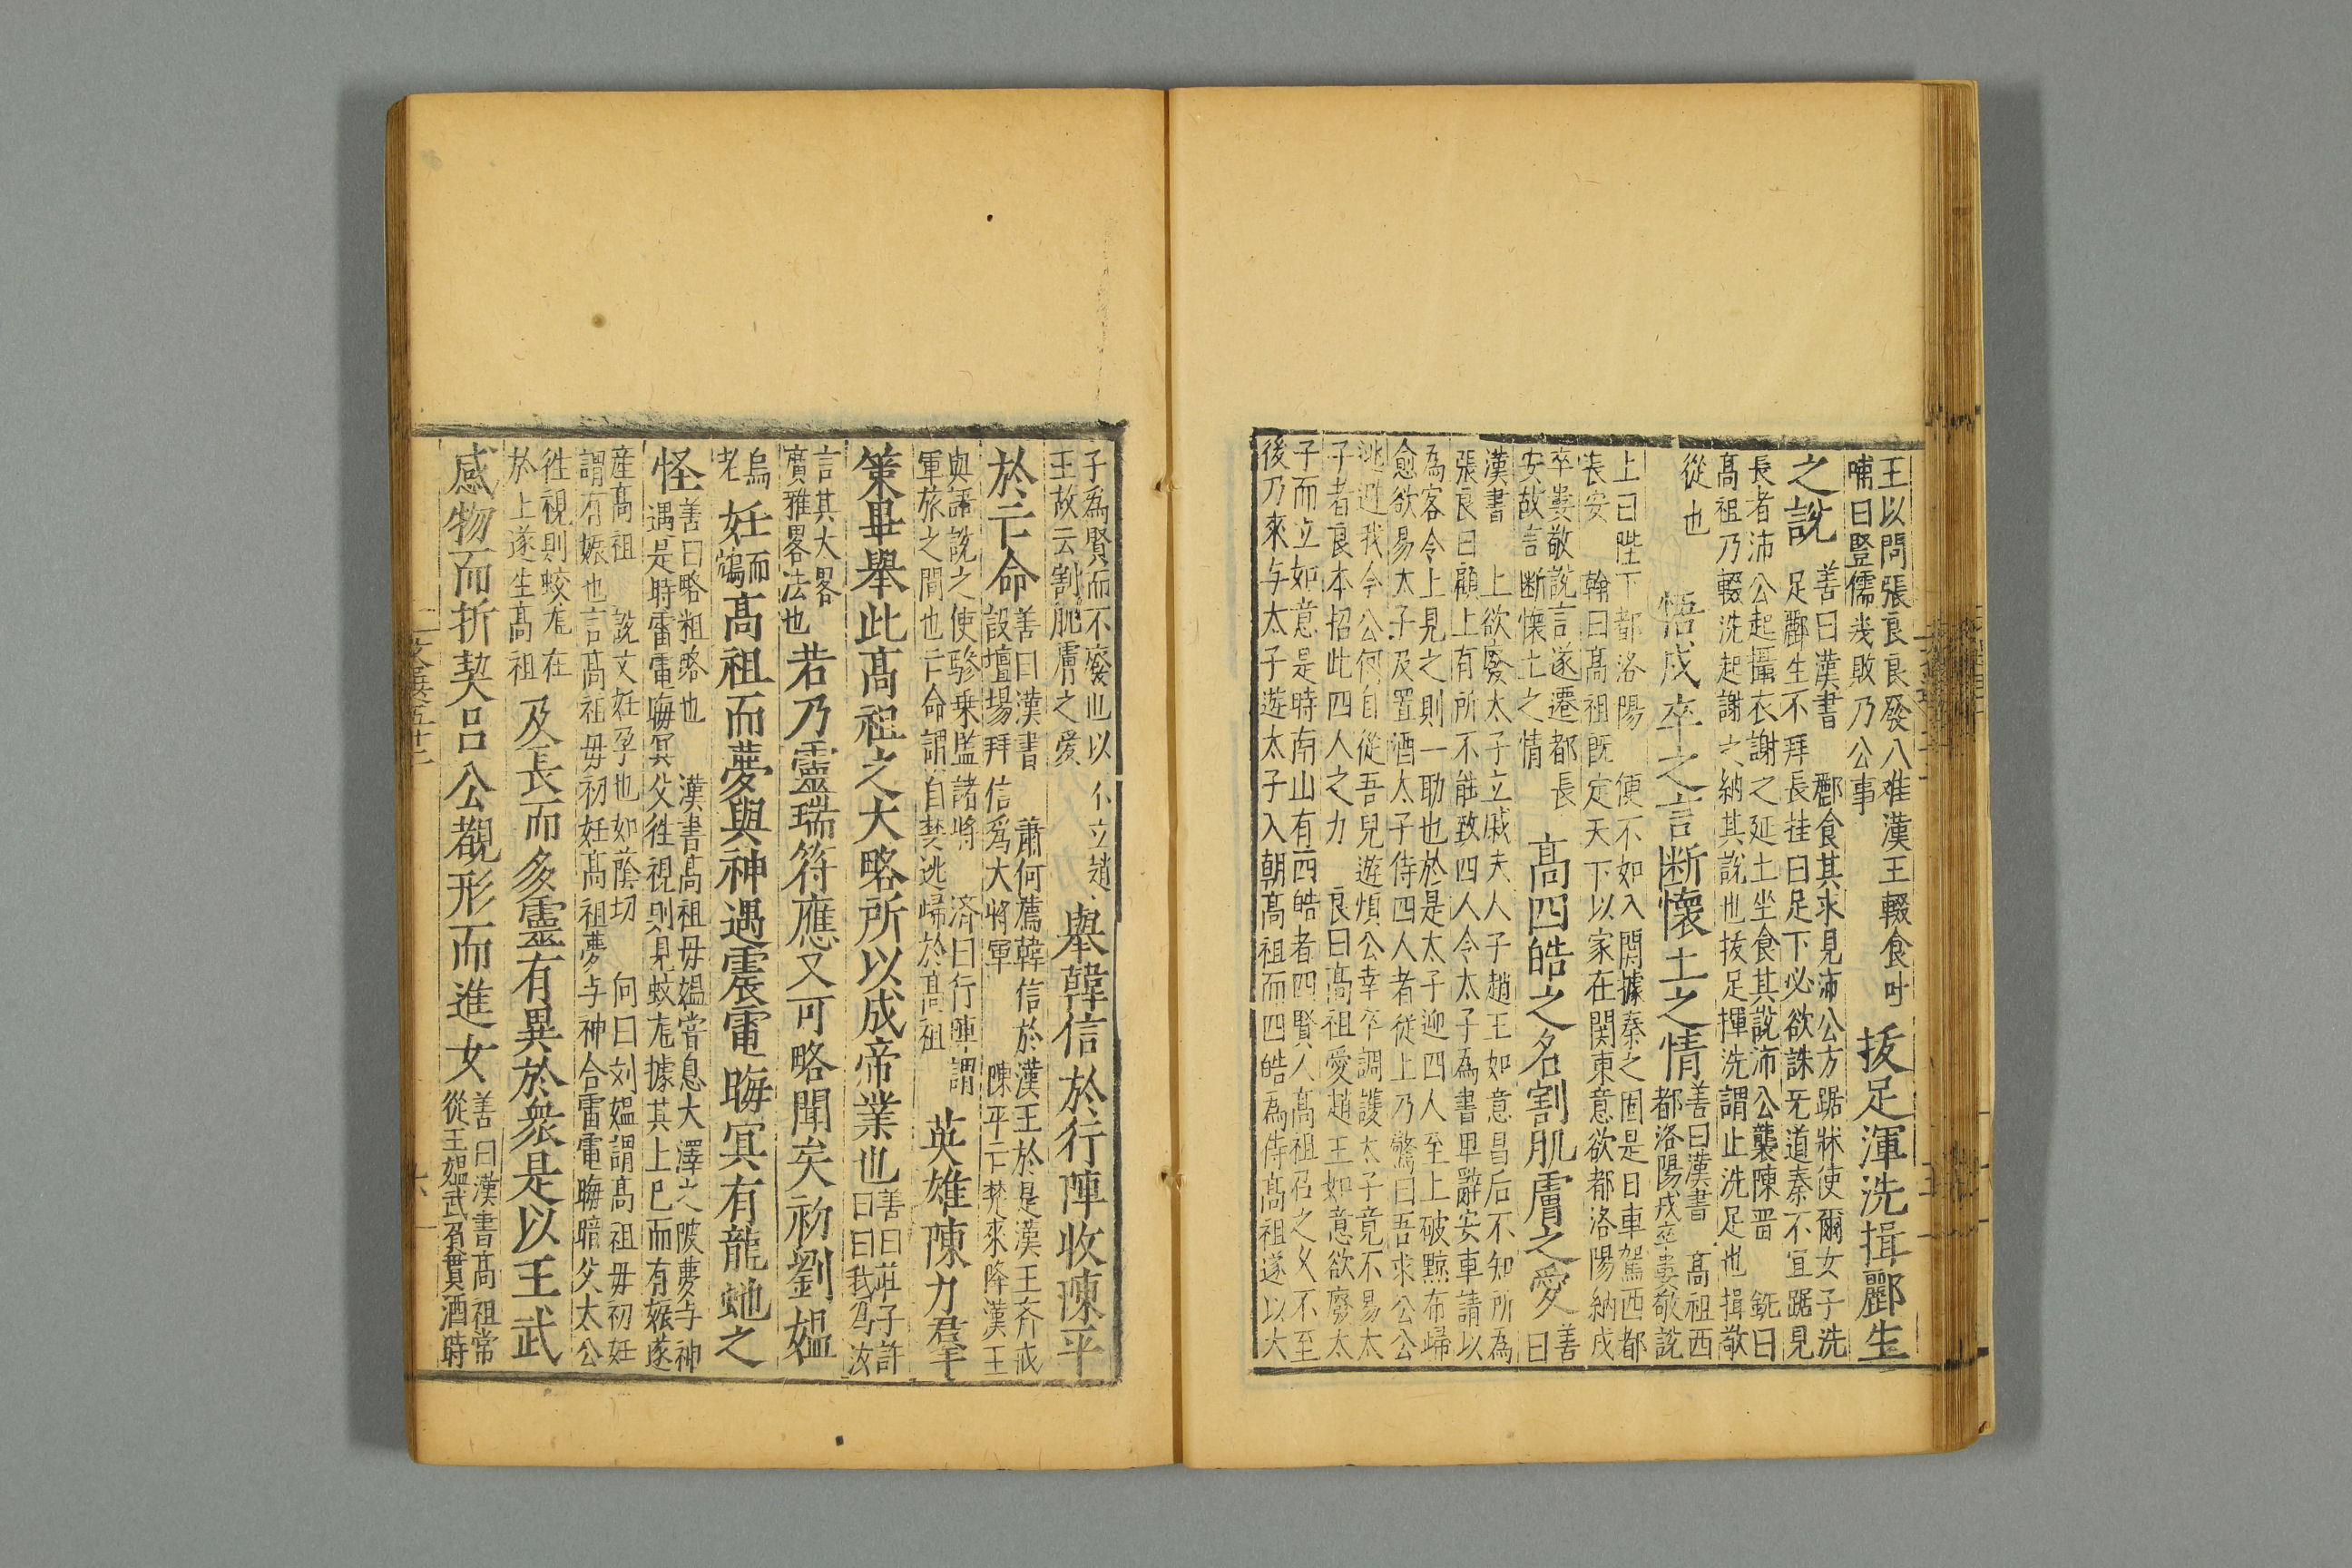 王以問張良良發八难漢王輟食吐
哺曰豎儒㡬敗乃公事
拔足渾洗揖酈生
之說
善曰漢書 酈食其求見沛公方踞牀使爾女子洗
足酈生不拜長挂曰足下必欲誅无道秦不宜踞見
長者沛公起攝衣謝之延土坐食其說沛公襲陳畱 銑曰
髙祖乃輟洗起謝之納其說也拔足揮洗謂止洗足也揖敬
從也
悟戍卒之言断懷土之情
善曰漢書 髙祖西
都洛陽戍卒婁敬說
上曰陛下都洛陽 便不如入関據秦之固是日車駕西都
長安 翰曰髙祖既定天下以家在関東意欲都洛陽納戍
卒婁敬說言遂遷都長
安故言断懷土之情
髙四皓之名割肌膚之愛
善
曰
漢書 上欲廢太子立戚夫人子趙王如意吕后不知所為
張良曰顧上有所不能致四人令太子為書卑辭安車請以
為客令上見之則一助也於是太子迎四人至上破黥布歸
愈欲易太子及置酒太子侍四人者從上乃驚曰吾求公公
逃避我今公何自從吾兒遊煩公幸卒調護太子竟不易太
子者良本招此四人之力 良曰髙祖愛趙王如意欲廢太
子而立如意是時南山有四皓者四賢人髙祖召之义不至
後乃來与太子遊太子入朝髙祖而四皓為侍髙祖遂以大
子爲賢而不廢也以不立趙
王故云割肌膚之愛
舉韓信於行陣收陳平
於亡命
善曰漢書 蕭何薦韓信於漢王於是漢王齐戒
設壇場拜信爲大將軍 陳平亡楚來降漢王
與語說之使驂乗監諸將 済曰行陣謂
軍旅之間也亡命謂自楚逃歸於髙祖
英雄陳力羣
策畢舉此髙祖之大略所以成帝業也
善曰莊子許
曰曰我爲汝
言其大畧
廣雅畧法也
若乃靈瑞符應又可略聞矣初劉媼
烏
老
妊
而
鴆
髙祖而夢與神遇震電晦冥有龍虵之
怪
善曰略粗略也 漢書髙祖毋媼甞息大澤之陂夢与神
遇是時雷電晦冥父徃視則見蛟尨據其上巳而有娠遂
産髙祖 說文妊孕也如蔭切 向曰刘媼謂髙祖毋初妊
謂有娠也言髙祖毋初妊髙祖夢与神合雷電晦暗父太公
徃視則蛟尨在
於上遂生髙祖
及長而多靈有異於衆是以王武
感物而折契呂公覩形而進女
善曰漢書髙祖常
從王媼武負貰酒時